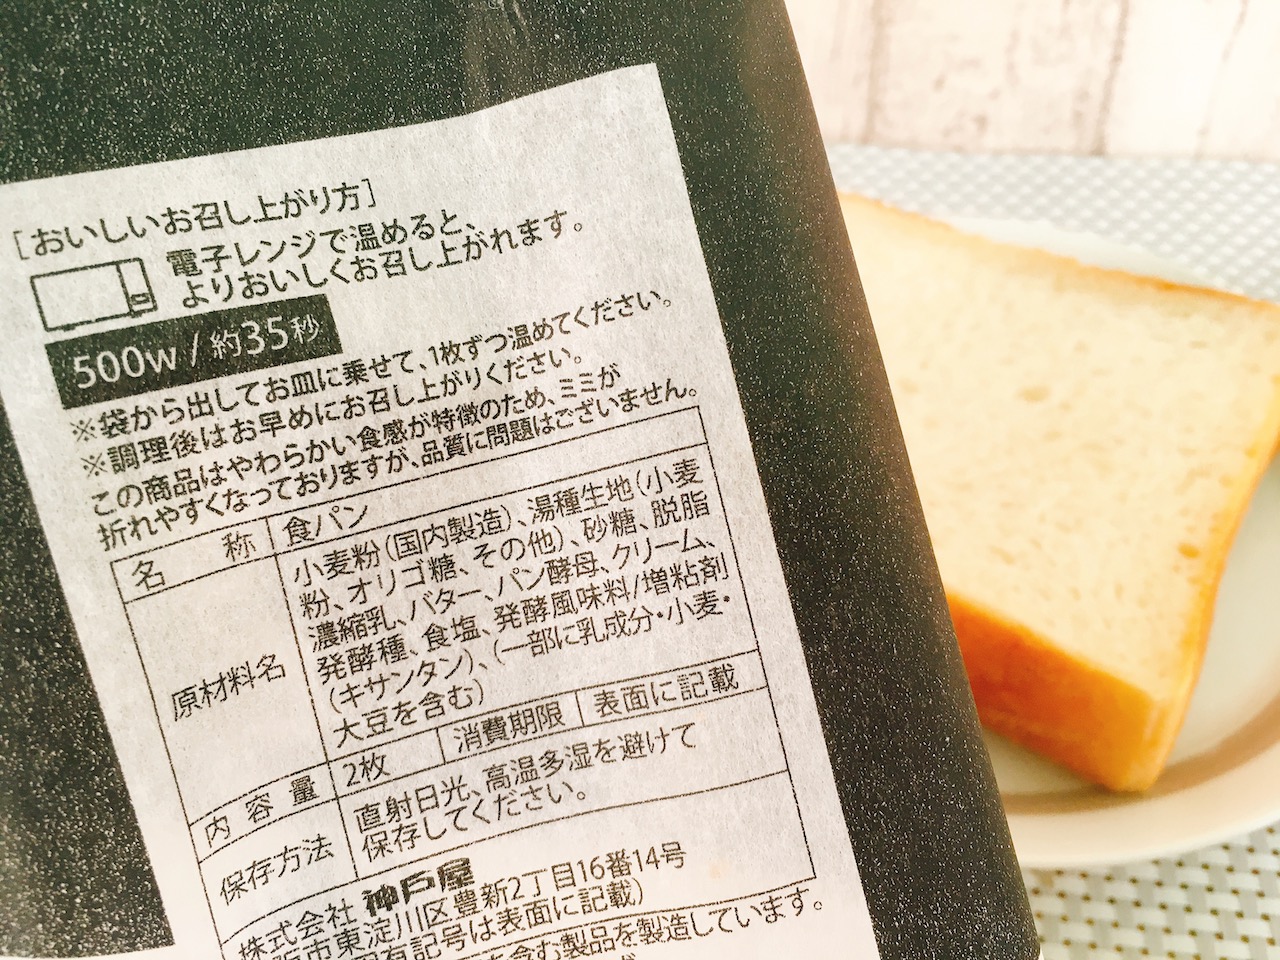 [おいしいお召し上がり方]
電子レンジで温めると、
よりおいしくお召し上がれます。
500w / 約35秒
※袋から出してお皿に乗せて、1枚ずつ温めてください。
※調理後はお早めにお召し上がりください。
この商品はやわらかい食感が特徴のため、ミミが
折れやすくなっておりますが、品質に問題はございません。
名称 食パン
原材料名 小麦粉(国内製造)、湯種生地(小麦
粉、オリゴ糖、その他)、砂糖、脱脂
濃縮乳、バター、パン酵母、クリーム、
発酵種、食塩、発酵風味料/増粘剤
(キサンタン)、(一部に乳成分・小麦・
大豆を含む)
内容量 2枚 消費期限 表面に記載
保存方法 直射日光、高温多湿を避けて
保存してください。
株式会社 神戸屋
阪市東淀川区豊新2丁目16番14号
有記号は表面に記載)
を含む製品を製造しています。